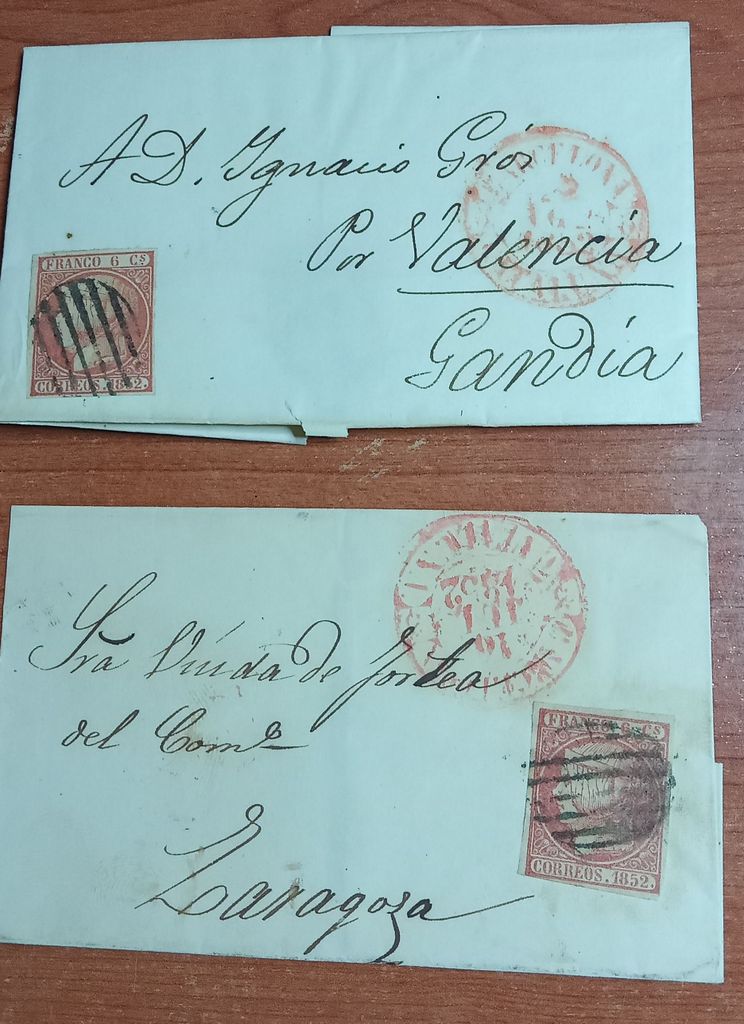 A D. Ignacio Grós
Por Valencia
Gandía
FRANCO 6 Cs
CORREOS. 1852.
Sra Viuda de Jortea
del Com.o
Zaragoza
FRANCO 6 Cs
CORREOS. 1852.